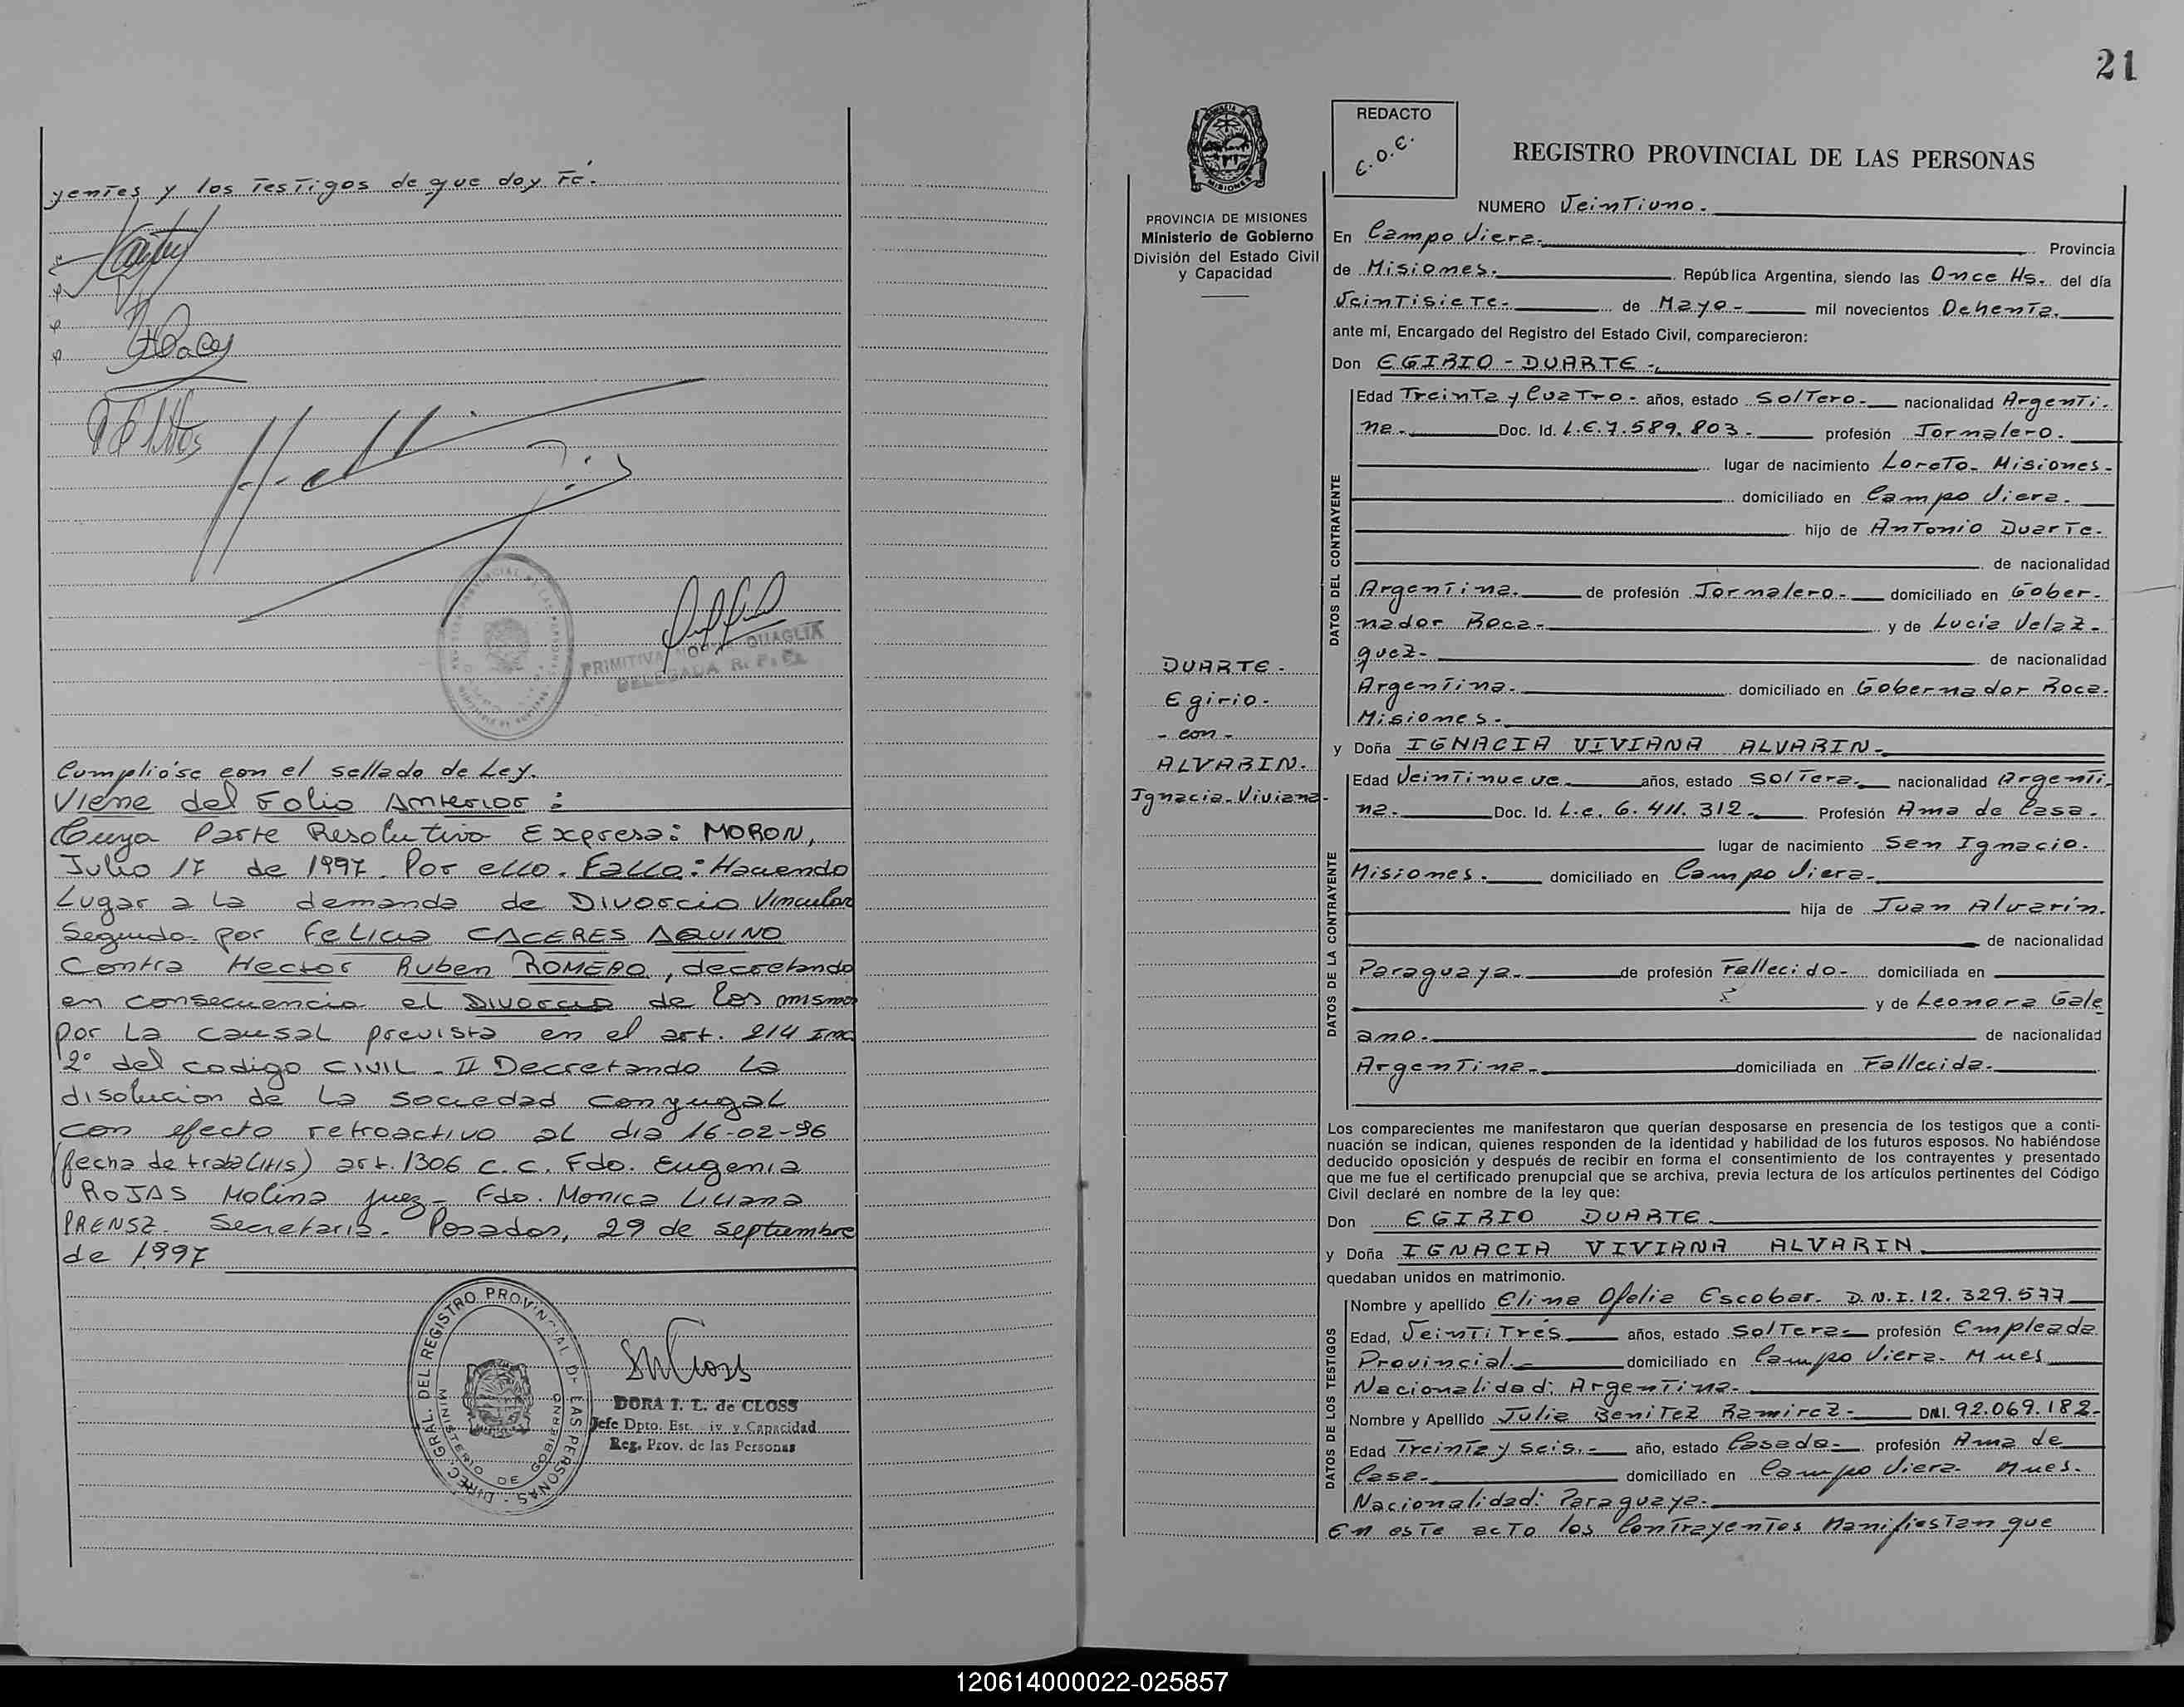 yentes y los testigos de que doy Fé.
PRIMITIVA
QUAGLIA
DELEGADA R. P. P.
Cumplióse con el sellado de Ley.
Viene del Folio Anterior :
Cuya Parte Resolutiva Expresa: MORON,
Julio 17 de 1997. Por ello. Fallo: Haciendo
Lugar a la demanda de Divorcio Vincular
Seguido por Felicia CACERES AQUINO
Contra Hector Ruben ROMERO, decretando
en consecuencia el Divorcio de los mismo
por La causal prevista en el art. 214 Inc
2° del codigo CIVIL - II Decretando La
disolución de La Sociedad conyugal
con efecto retroactivo al dia 16-02-96
(fecha de traba Litis) art. 1306 C.C. Fdo. Eugenia
ROJAS Molina Juez - Fdo. Monica Liliana
PRENSZ. Secretaria. Posadas, 29 de septiembre
de 1997
DIREC. GRAL. DEL REGISTRO PROVINCIAL DE LAS PERSONAS -
MINISTERIO DE GOBIERNO
DORA T. L. de CLOSS
Jefe Dpto. Est. iv. y Capacidad
Reg. Prov. de las Personas
21
PROVINCIA DE MISIONES
Ministerio de Gobierno
División del Estado Civil
y Capacidad
DUARTE -
Egirio -
- con -
ALVARIN.
Ignacia-Viviana-
REDACTO
E.O.E.
REGISTRO PROVINCIAL DE LAS PERSONAS
NUMERO Veintiuno.
En Campo Viera. Provincia
de Misiones. República Argentina, siendo las Once Hs. del día
Veintisiete- de Mayo- mil novecientos Ochenta.
ante mí, Encargado del Registro del Estado Civil, comparecieron:
Don EGIRIO - DUARTE -
DATOS DEL CONTRAYENTE
Edad Treinta y Cuatro- años, estado Soltero- nacionalidad Argenti-
na. Doc. Id. L.E.7.589.803- profesión Jornalero.
lugar de nacimiento Loreto- Misiones-
domiciliado en Campo Viera.
hijo de Antonio Duarte-
de nacionalidad
Argentina. de profesión Jornalero- domiciliado en Gober-
nador Roca- y de Lucia Velaz-
quez- de nacionalidad
Argentina. domiciliado en Gobernador Roca.
Misiones-
y Doña IGNACIA VIVIANA ALVARIN-
DATOS DE LA CONTRAYENTE
Edad Veintinueve años, estado Soltera- nacionalidad Argenti-
na. Doc. Id. L.c. 6.411.312. Profesión Ama de Casa.
lugar de nacimiento San Ignacio.
Misiones. domiciliado en Campo Viera-
hija de Juan Alvarin.
de nacionalidad
Paraguaya. de profesión Fallecido- domiciliada en
y de Leonora Gale
ano. de nacionalidad
Argentina- domiciliada en Fallecida.
Los comparecientes me manifestaron que querían desposarse en presencia de los testigos que a conti-
nuación se indican, quienes responden de la identidad y habilidad de los futuros esposos. No habiéndose
deducido oposición y después de recibir en forma el consentimiento de los contrayentes y presentado
que me fue el certificado prenupcial que se archiva, previa lectura de los artículos pertinentes del Código
Civil declaré en nombre de la ley que:
Don EGIRIO DUARTE.
y Doña IGNACIA VIVIANA ALVARIN.
quedaban unidos en matrimonio.
DATOS DE LOS TESTIGOS
Nombre y apellido Elina Ofelia Escobar. D.N.I. 12.329.577
Edad, Veintitrés años, estado Soltera- profesión Empleada
Provincial.- domiciliado en Campo Viera- Mnes
Nacionalidad: Argentina-
Nombre y Apellido Julia Benitez Ramirez- DNI. 92.069.182-
Edad Treinta y seis.- año, estado Casada- profesión Ama de
Casa- domiciliado en Campo Viera- Mnes.
Nacionalidad: Paraguaya-
En este acto los Contrayentes Manifiestan que
120614000022-025857